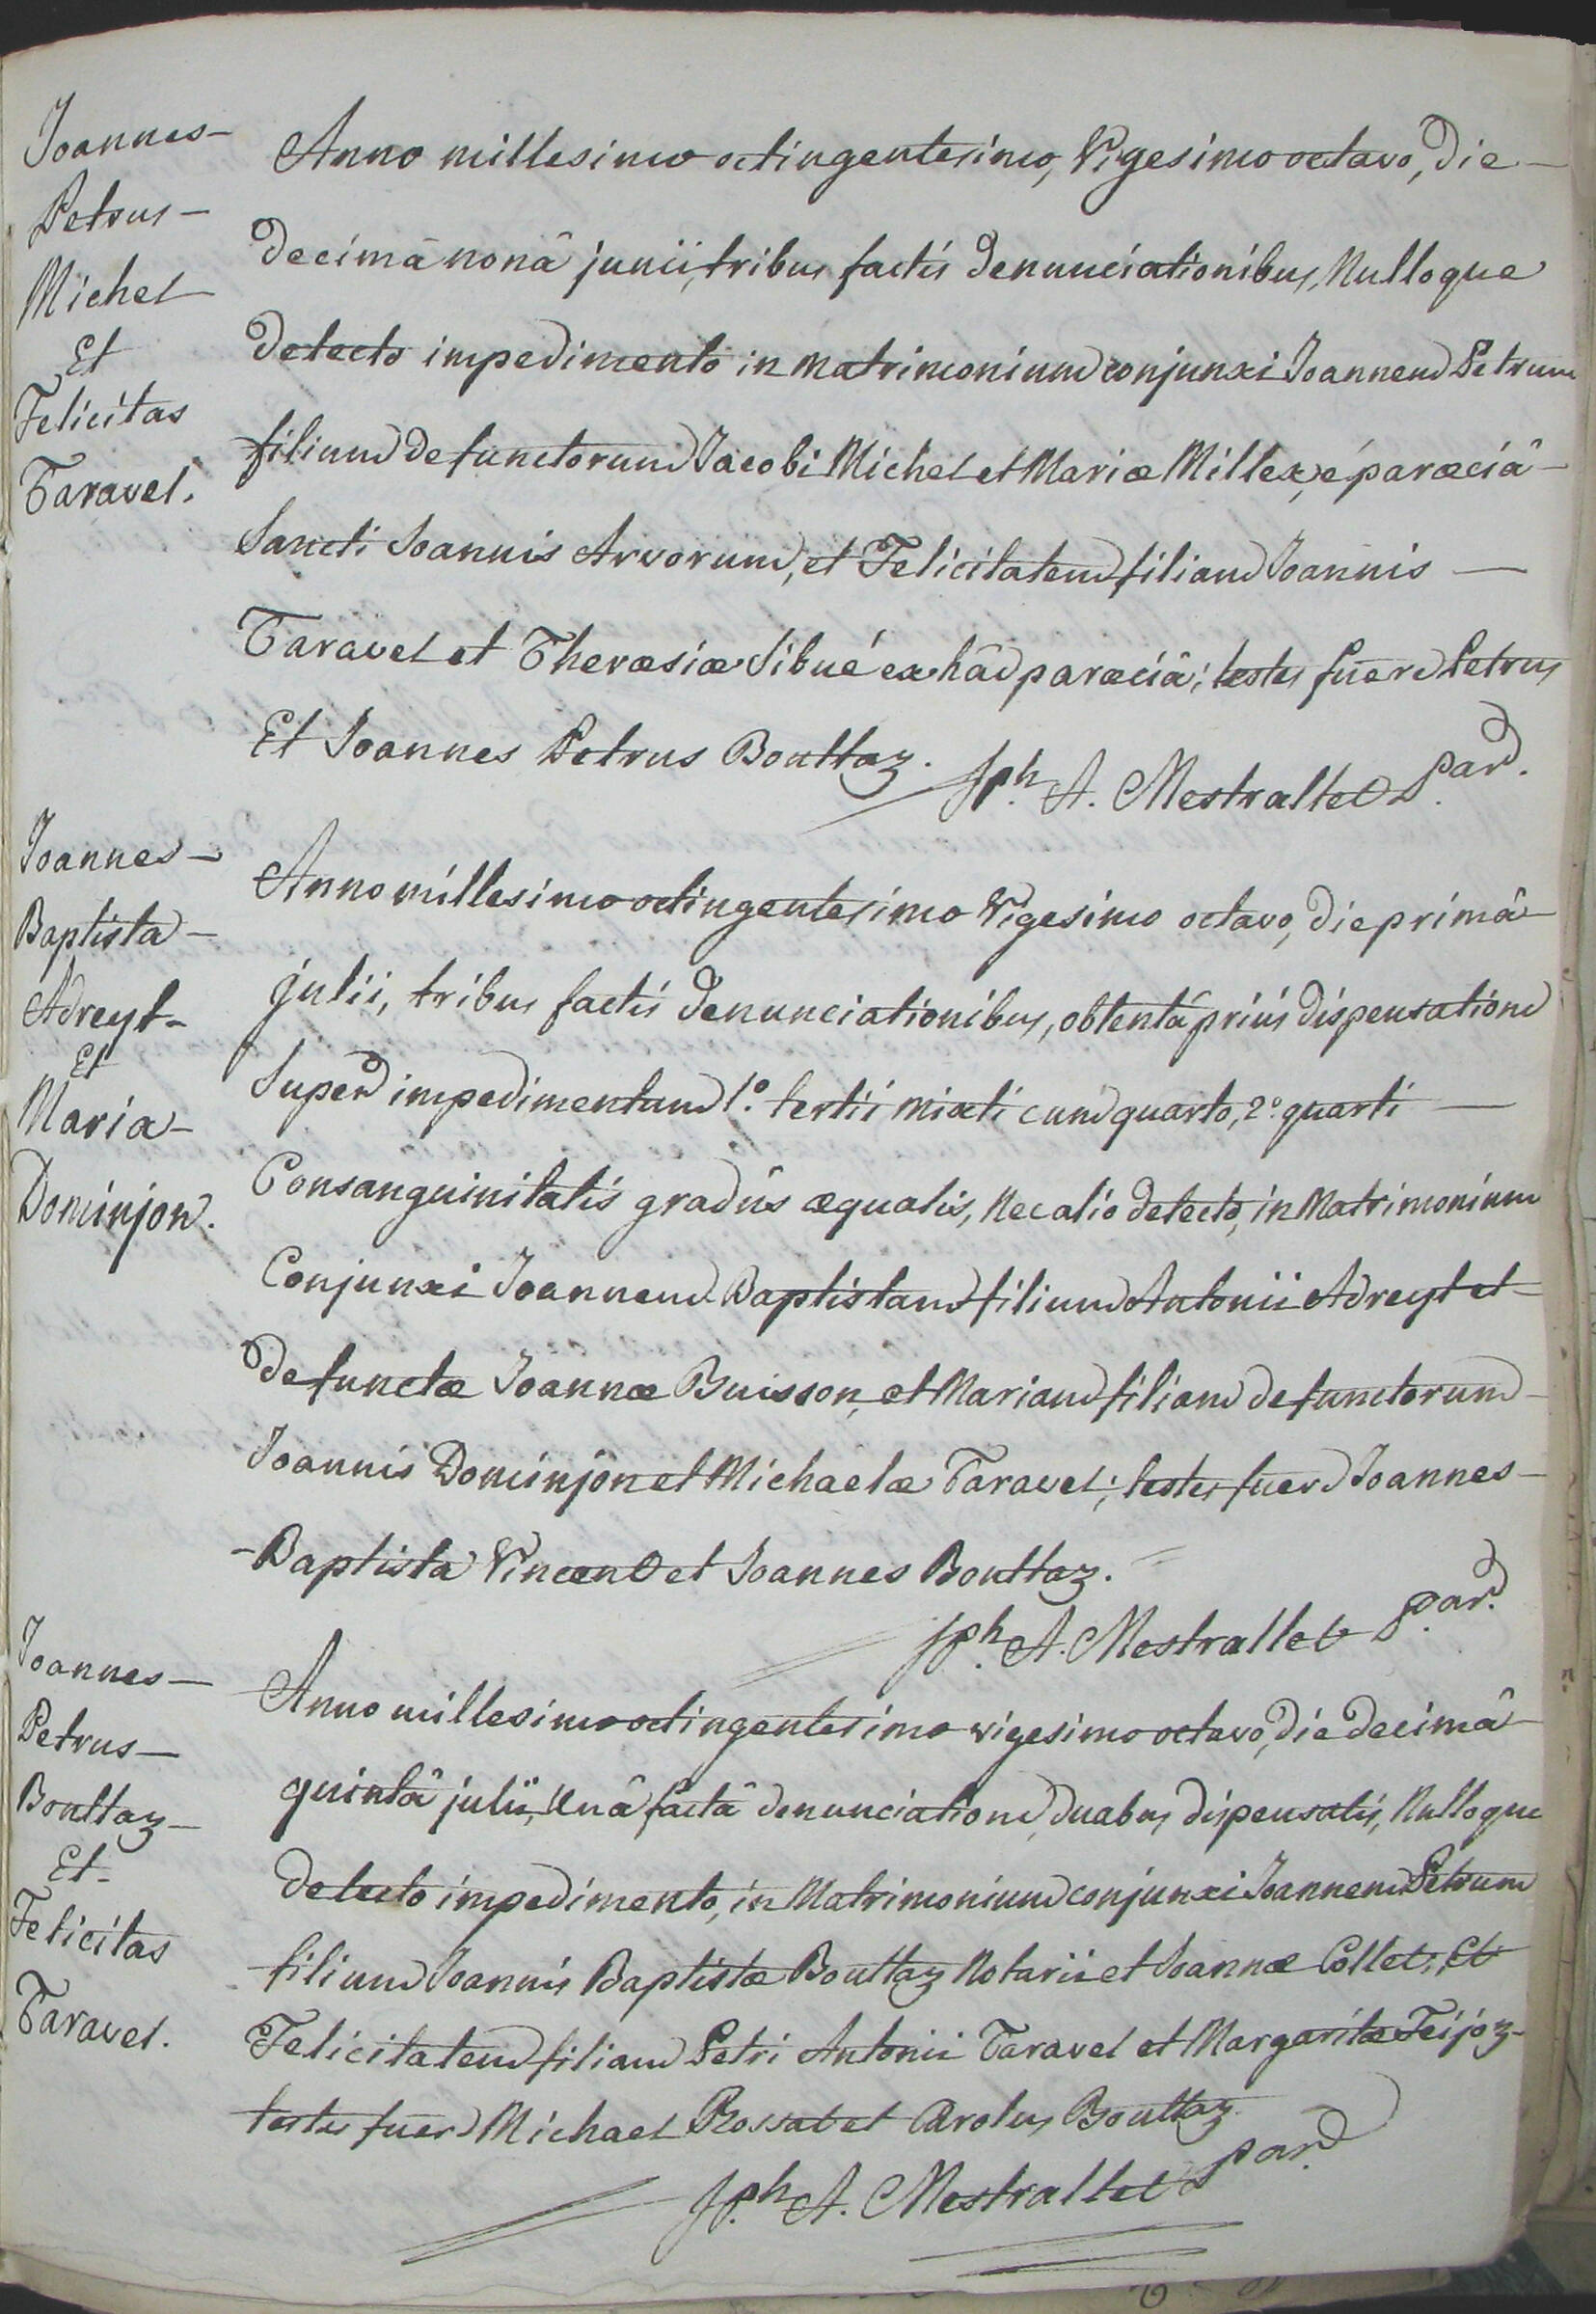 Joannes-
Petrus-
Michel
Et
Felicitas
Taravel.
Anno millesimo octingentesimo, Vigesimo octavo, die-
decimâ nonâ junii, tribus factis denunciationibus, Nulloque
detecto impedimento in matrimonium conjunxi Joannem Petrum
filium defunctorum Jacobi Michel et Mariæ Millex, é parœciâ-
Sancti Joannis Arvorum, et Felicitatem filiam Joannis -
Taravel et Theresiæ Sibué ex hâc parœciâ; testes fuere Petrus
Et Joannes Petrus Bouttaz.
Jph. A. Mestrallet Par.
Joannes-
Baptista-
Adreyt-
Et
Maria-
Dominjon.
Anno millesimo octingentesimo Vigesimo octavo, die primâ-
julii, tribus factis denunciationibus, obtentâ priùs dispensatione
Super impedimentum 1.° tertii mixti cum quarto, 2.° quarti -
Consanguinitatis gradûs æqualis, Nec alio detecto, in Matrimonium
Conjunxi Joannem Baptistam filium Antonii Adreyt et-
defunctæ Joannæ Buisson, et Mariam filiam defunctorum-
Joannis Dominjon et Michaelæ Taravel; testes fuere Joannes-
-Baptista Vincent et Joannes Bouttaz. =
Jph. A. Mestrallet Par.
Joannes-
Petrus-
Bouttaz-
Et-
Felicitas
Taravel.
Anno millesimo octingentesimo vigesimo octavo, die decimâ-
quintâ julii, Unâ factâ denunciatione, duabus dispensatis, Nulloque
detecto impedimento, in Matrimonium conjunxi Joannem Petrum
filium Joannis Baptistæ Bouttaz Notarii et Joannæ Collet; Et
Felicitatem filiam Petri Antonii Taravel et Margaritæ Feijoz-
testes fuere Michael Rossat et Carolus Bouttaz
Jph. A. Mestrallet par.